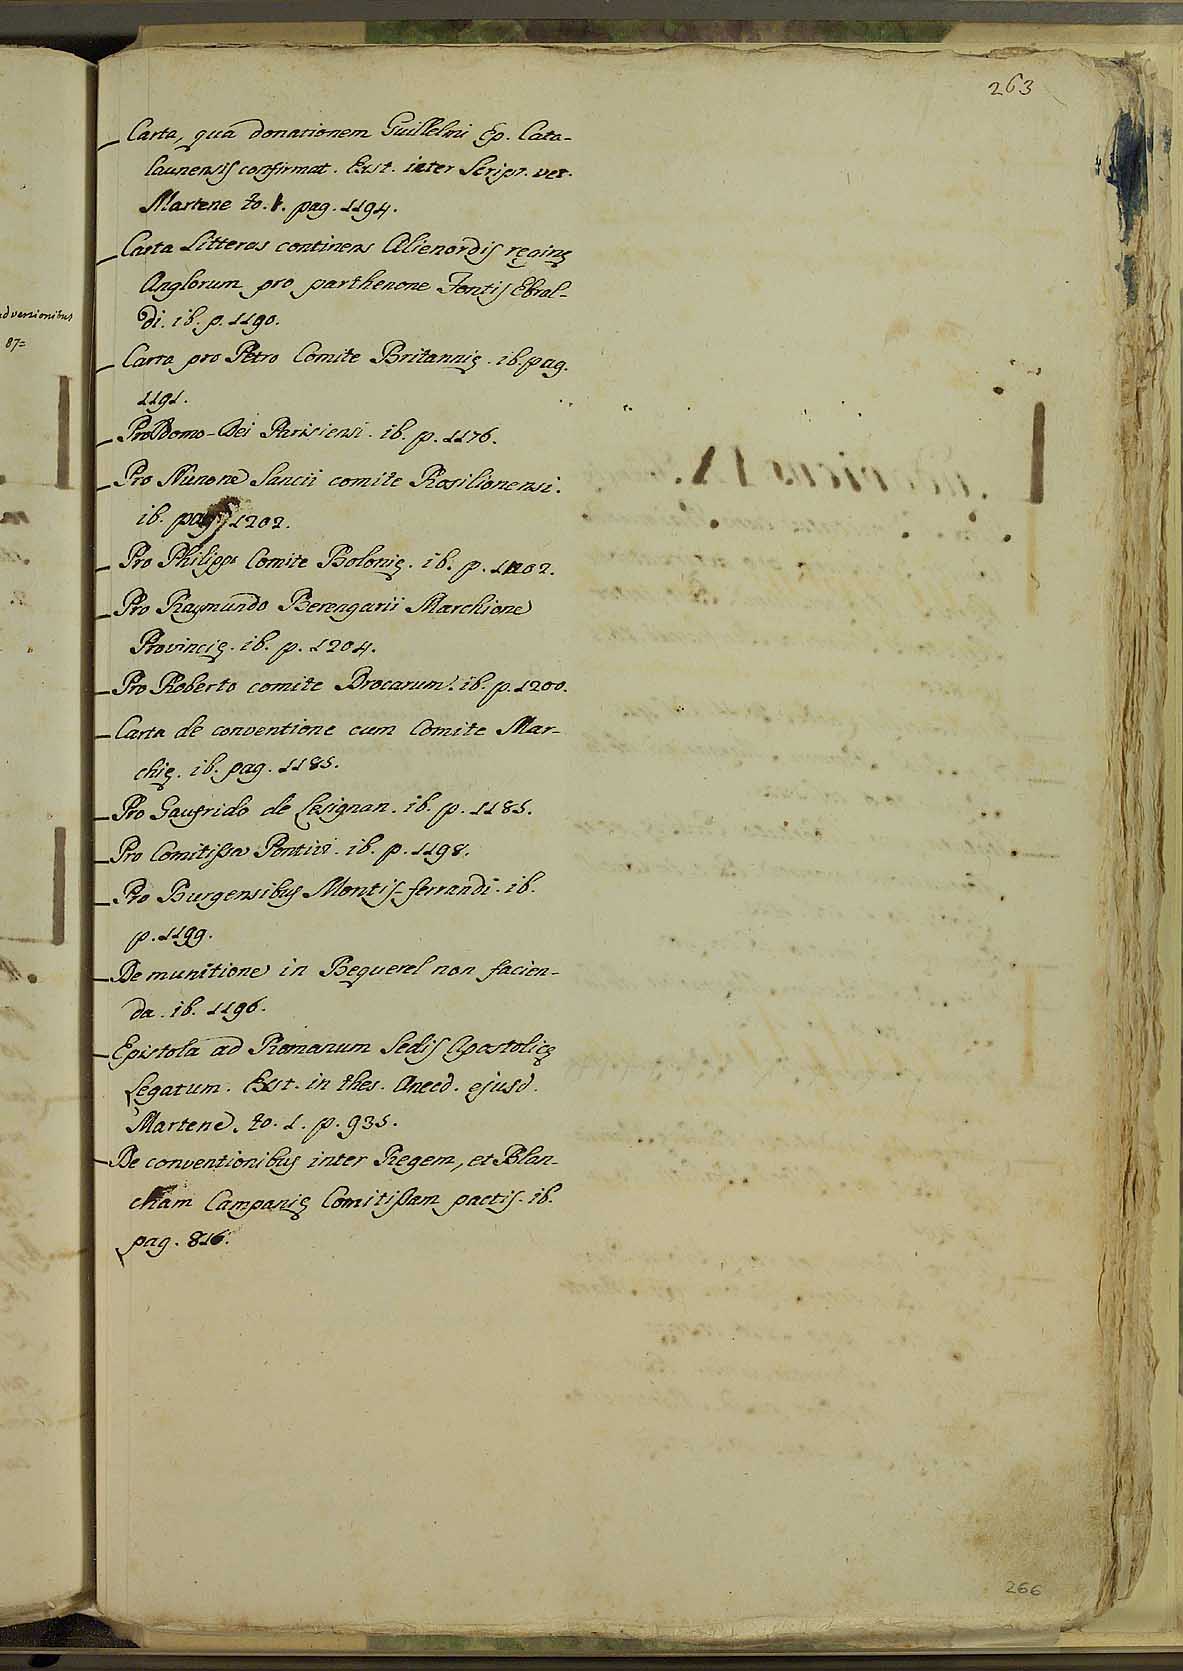 263
Carta, qua donationem Guillelmi Ep. Cata-
launensis confirmat. Exst. inter Script. vet.
Martene to. 1. pag. 1194.
Carta Litteras continens Alienordis reginę
Anglorum pro parthenone Fontis Ebral-
di. ib. p. 1190.
Carta pro Petro Comite Britannię. ib. pag.
1191.
Pro Domo-Dei Parisiensi. ib. p. 1176.
Pro Nunone Sancii comite Rosilionensi.
ib. pag. 1202.
Pro Philippo Comite Bolonię. ib. p. 1202.
Pro Raymundo Berengarii Marchione
Provincię. ib. p. 1204.
Pro Roberto comite Drocarum. ib. p. 1200.
Carta de conventione cum Comite Mar-
chię. ib. pag. 1185.
Pro Gaufrido de Lesignan. ib. p. 1185.
Pro Comitissa Pontivi. ib. p. 1198.
Pro Burgensibus Montis-ferrandi. ib.
p. 1199.
De munitione in Bequerel non facien-
da. ib. 1196.
Epistola ad Romanum Sedis Apostolicę
Legatum. Exst. in thes. Aneed. ejusd.
Martene, to. 1. p. 935.
De conventionibus inter Regem, et Blan-
cham Campanię Comitissam pactis. ib.
pag. 816.
adversionibus
87=
266